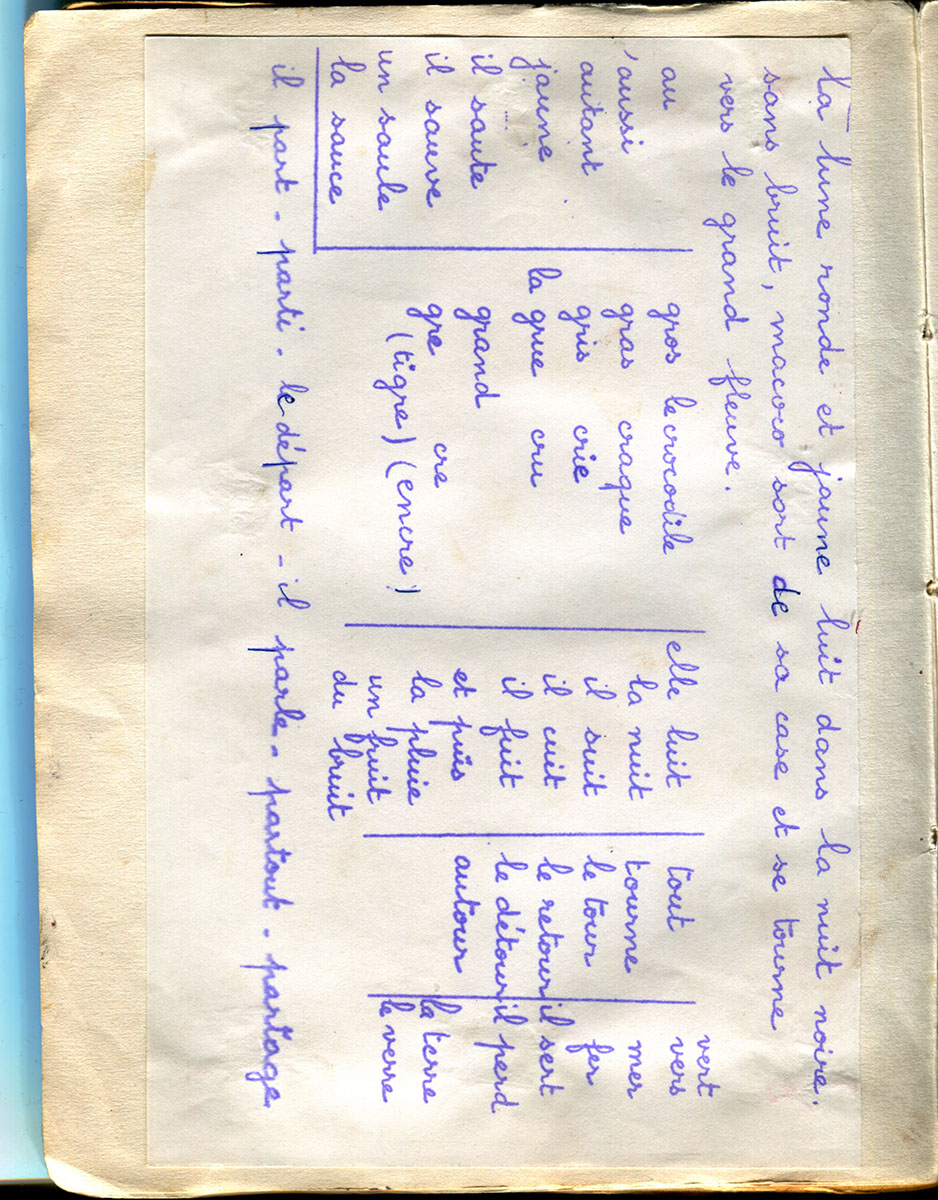 La lune ronde et jaune luit dans la nuit noire.
sans bruit, macoco sort de sa case et se tourne
vers le grand fleuve.
au
aussi
autant
jaune
il saute
il sauve
un saule
la sauce
gros le crocodile
gras craque
gris crie
la grue cru
grand
gre cre
(tigre) (encre)
elle luit
la nuit
il suit
il cuit
il fuit
et puis
la pluie
un fruit
du bruit
tout
tourne
le tour
le retour
le détour
autour
vert
vers
mer
fer
il sert
il perd
la terre
le verre
il part - parti - le départ - il parle - partout - partage.